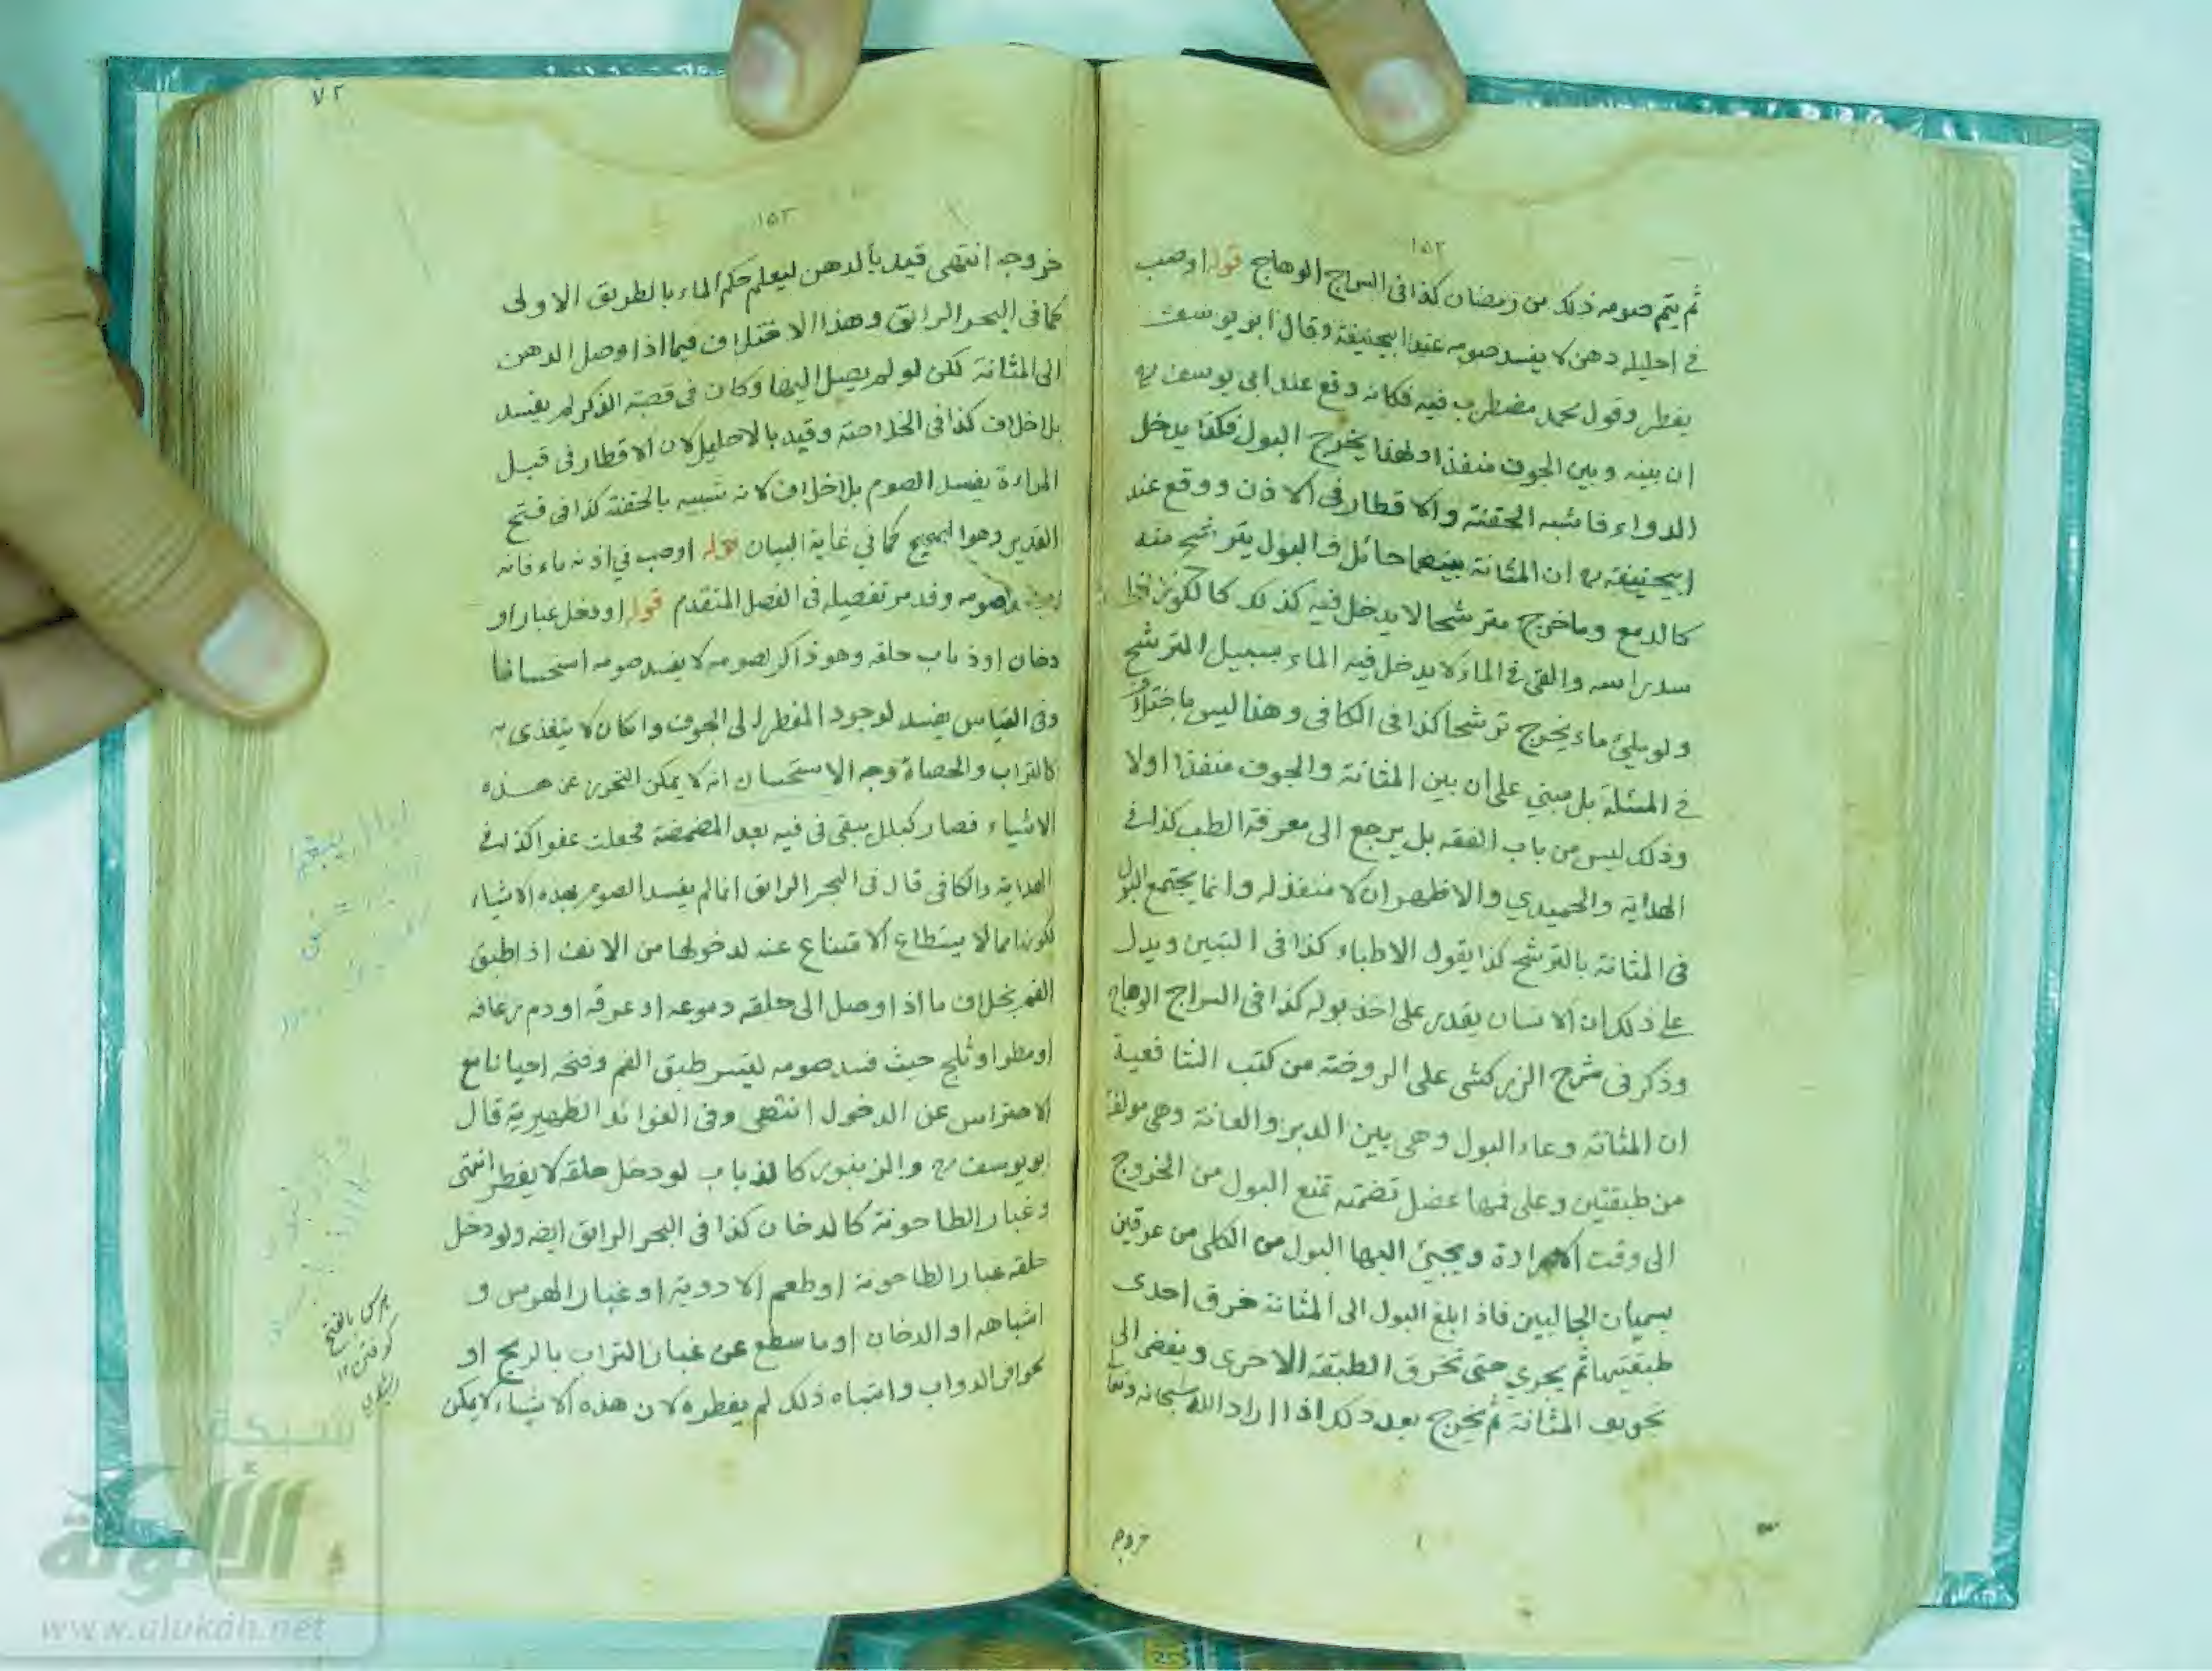 ١٥٢
ثم يتم صومه ذلك من رمضان كذا فى السراج الوهاج قوله اوصب
في احليله دهن لا يفسد صومه عند ابيحنيفة وقال ابو يوسف
يفطر وقول محمد مضطرب فيه فكانه وقع عند ابى يوسف رح
ان بينه وبين الجوف منفذا ولهذا يخرج البول فكذا يدخل
الدواء فاشبه الحقنة والاقطار فى الاذن ووقع عند
ابيحنيفة رح ان المثانة بينهما حائل فالبول يترشح منه
كالدمع وما خرج مترشحا لا يدخل فيه كذلك كالكوز اذا
سد راسه والقى في الماء لا يدخل فيه الماء بسبيل الترشح
ولو ملئ ماء يخرج ترشحا كذا فى الكافى وهذا ليس باختلاف
في المسئلة بل مبني على ان بين المثانة والجوف منفذا اولا
وذلك ليس من باب الفقه بل يرجع الى معرفة الطب كذا في
الهداية والحميدي والاظهر ان لا منفذ له وانما يجتمع البول
فى المثانة بالترشح كذا يقول الاطباء كذا فى التبين ويدل
على ذلك ان الانسان يقدر على اخذ بوله كذا فى السراج الوهاج
وذكر فى شرح الزركشى على الروضة من كتب الشافعية
ان المثانة وعاء البول وهى بين الدبر والعانة وهى مولفة
من طبقتين وعلى فمها عضل تضمنه تمنع البول من الخروج
الى وقت الارادة ويجيئ اليها البول من الكلى من عرقين
يسميان الجالبين فاذا بلغ البول الى المثانة خرق احدى
طبقتيها ثم يجري حتى تخرق الطبقة الاخرى ويفضى الى
تجويف المثانة ثم يخرج بعد ذلك اذا اراد الله سبحانه وتعا
خروجه
٧٢
١٥٣
خروجه انتهى قيد بالدهن ليعلم حكم الماء بالطريق الاولى
كما فى البحر الرائق وهذا الاختلاف فيما اذا وصل الدهن
الى المثانة لكن لو لم يصل اليها وكان فى قصبة الذكر لم يفسد
بلا خلاف كذا فى الخلاصة وقيد بالاحليل لان الاقطار فى قبل
المراءة يفسد الصوم بلا خلاف لانه شبيه بالحقنة كذا فى فتح
القدير وهو الصحيح كما في غاية البيان قوله اوصب في اذنه ماء فانه
صومه وقد مر تفصيله فى الفصل المتقدم قوله اودخل غبار او
دخان اوذباب حلقه وهو ذاكر لصومه لا يفسد صومه استحسانا
وفى القياس يفسد لوجود المفطر الى الجوف وان كان لا يتغذى به
كالتراب والحصاة وجه الاستحسان انه لا يمكن التحرز عن هذه
الاشياء فصار كبلل يبقى فى فيه بعد المضمضة فجعلت عفوا كذا في
الهداية والكافى قال فى البحر الرائق انما لم يفسد الصوم بهذه الاشياء
لكونها مما لا يستطاع الامتناع عنه لدخولها من الانف اذ اطبق
الفم بخلاف ما اذا وصل الى حلقه دموعه او عرقه او دم رعافه
او مطر اوثلج حيث فسد صومه ليتسر طبق الفم وفتحه احيانا مع
الاحتراس عن الدخول انتهى وفى الفوائد الظهيرية قال
بويوسف رح والزنبور كالذباب لو دخل حلقه لا يفطر انتهى
وغبار الطاحونة كالدخان كذا فى البحر الرائق ايضه ولو دخل
حلقه غبار الطاحونة اوطعم الادوية او غبار الهرس و
اشباهه او الدخان او ما سطع عن غبار التراب بالريح او
بحوافر الدواب واشباه ذلك لم يفطره لان هذه الاشياء لا يمكن
هرس بالفتح
كوفتن ١٢
شبكة
الألوكة
www.alukah.net